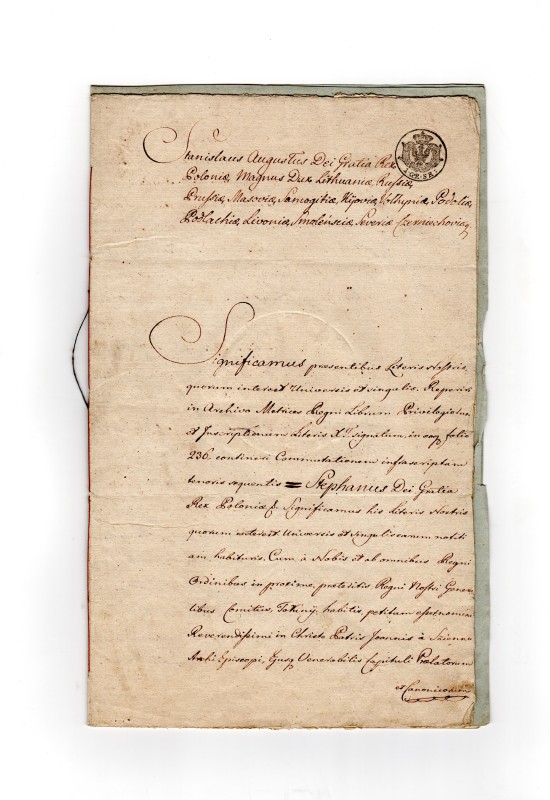 Stanislaus Augustus Dei Gratia Rex
Poloniæ, Magnus Dux Lithuaniæ, Russiæ
Prussiæ, Masoviæ, Samogitiæ, Kijoviæ, Volhyniæ, Podoliæ,
Podlachiæ, Livoniæ, Smolensciæ, Severiæ Czerniechoviæq
Significamus præsentibus Literis Nostris,
quorum interest Universis et singulis. Reperiri
in Archivo Metrices Regni Librum Privilegiorum
et Inscriptionum Literis signatum, in eoq folio
236. contineri Commutationem infrascriptam
tenoris sequentis = Stephanus Dei Gratia
Rex Poloniæ Significamus his literis Nostris
quorum interest Universis et singulis earum notiti
am habituris. Cum à Nobis et ab omnibus Regni
Ordinibus in proxime præteritis Regni Nostri Genera
libus Comitiis, habitis, petitum esset nomine
Reverendissimi in Christo Patris Joannis à
Archi Episcopi, Ejusq Venerabilis Capituli Prælatorum
et Canonicorum